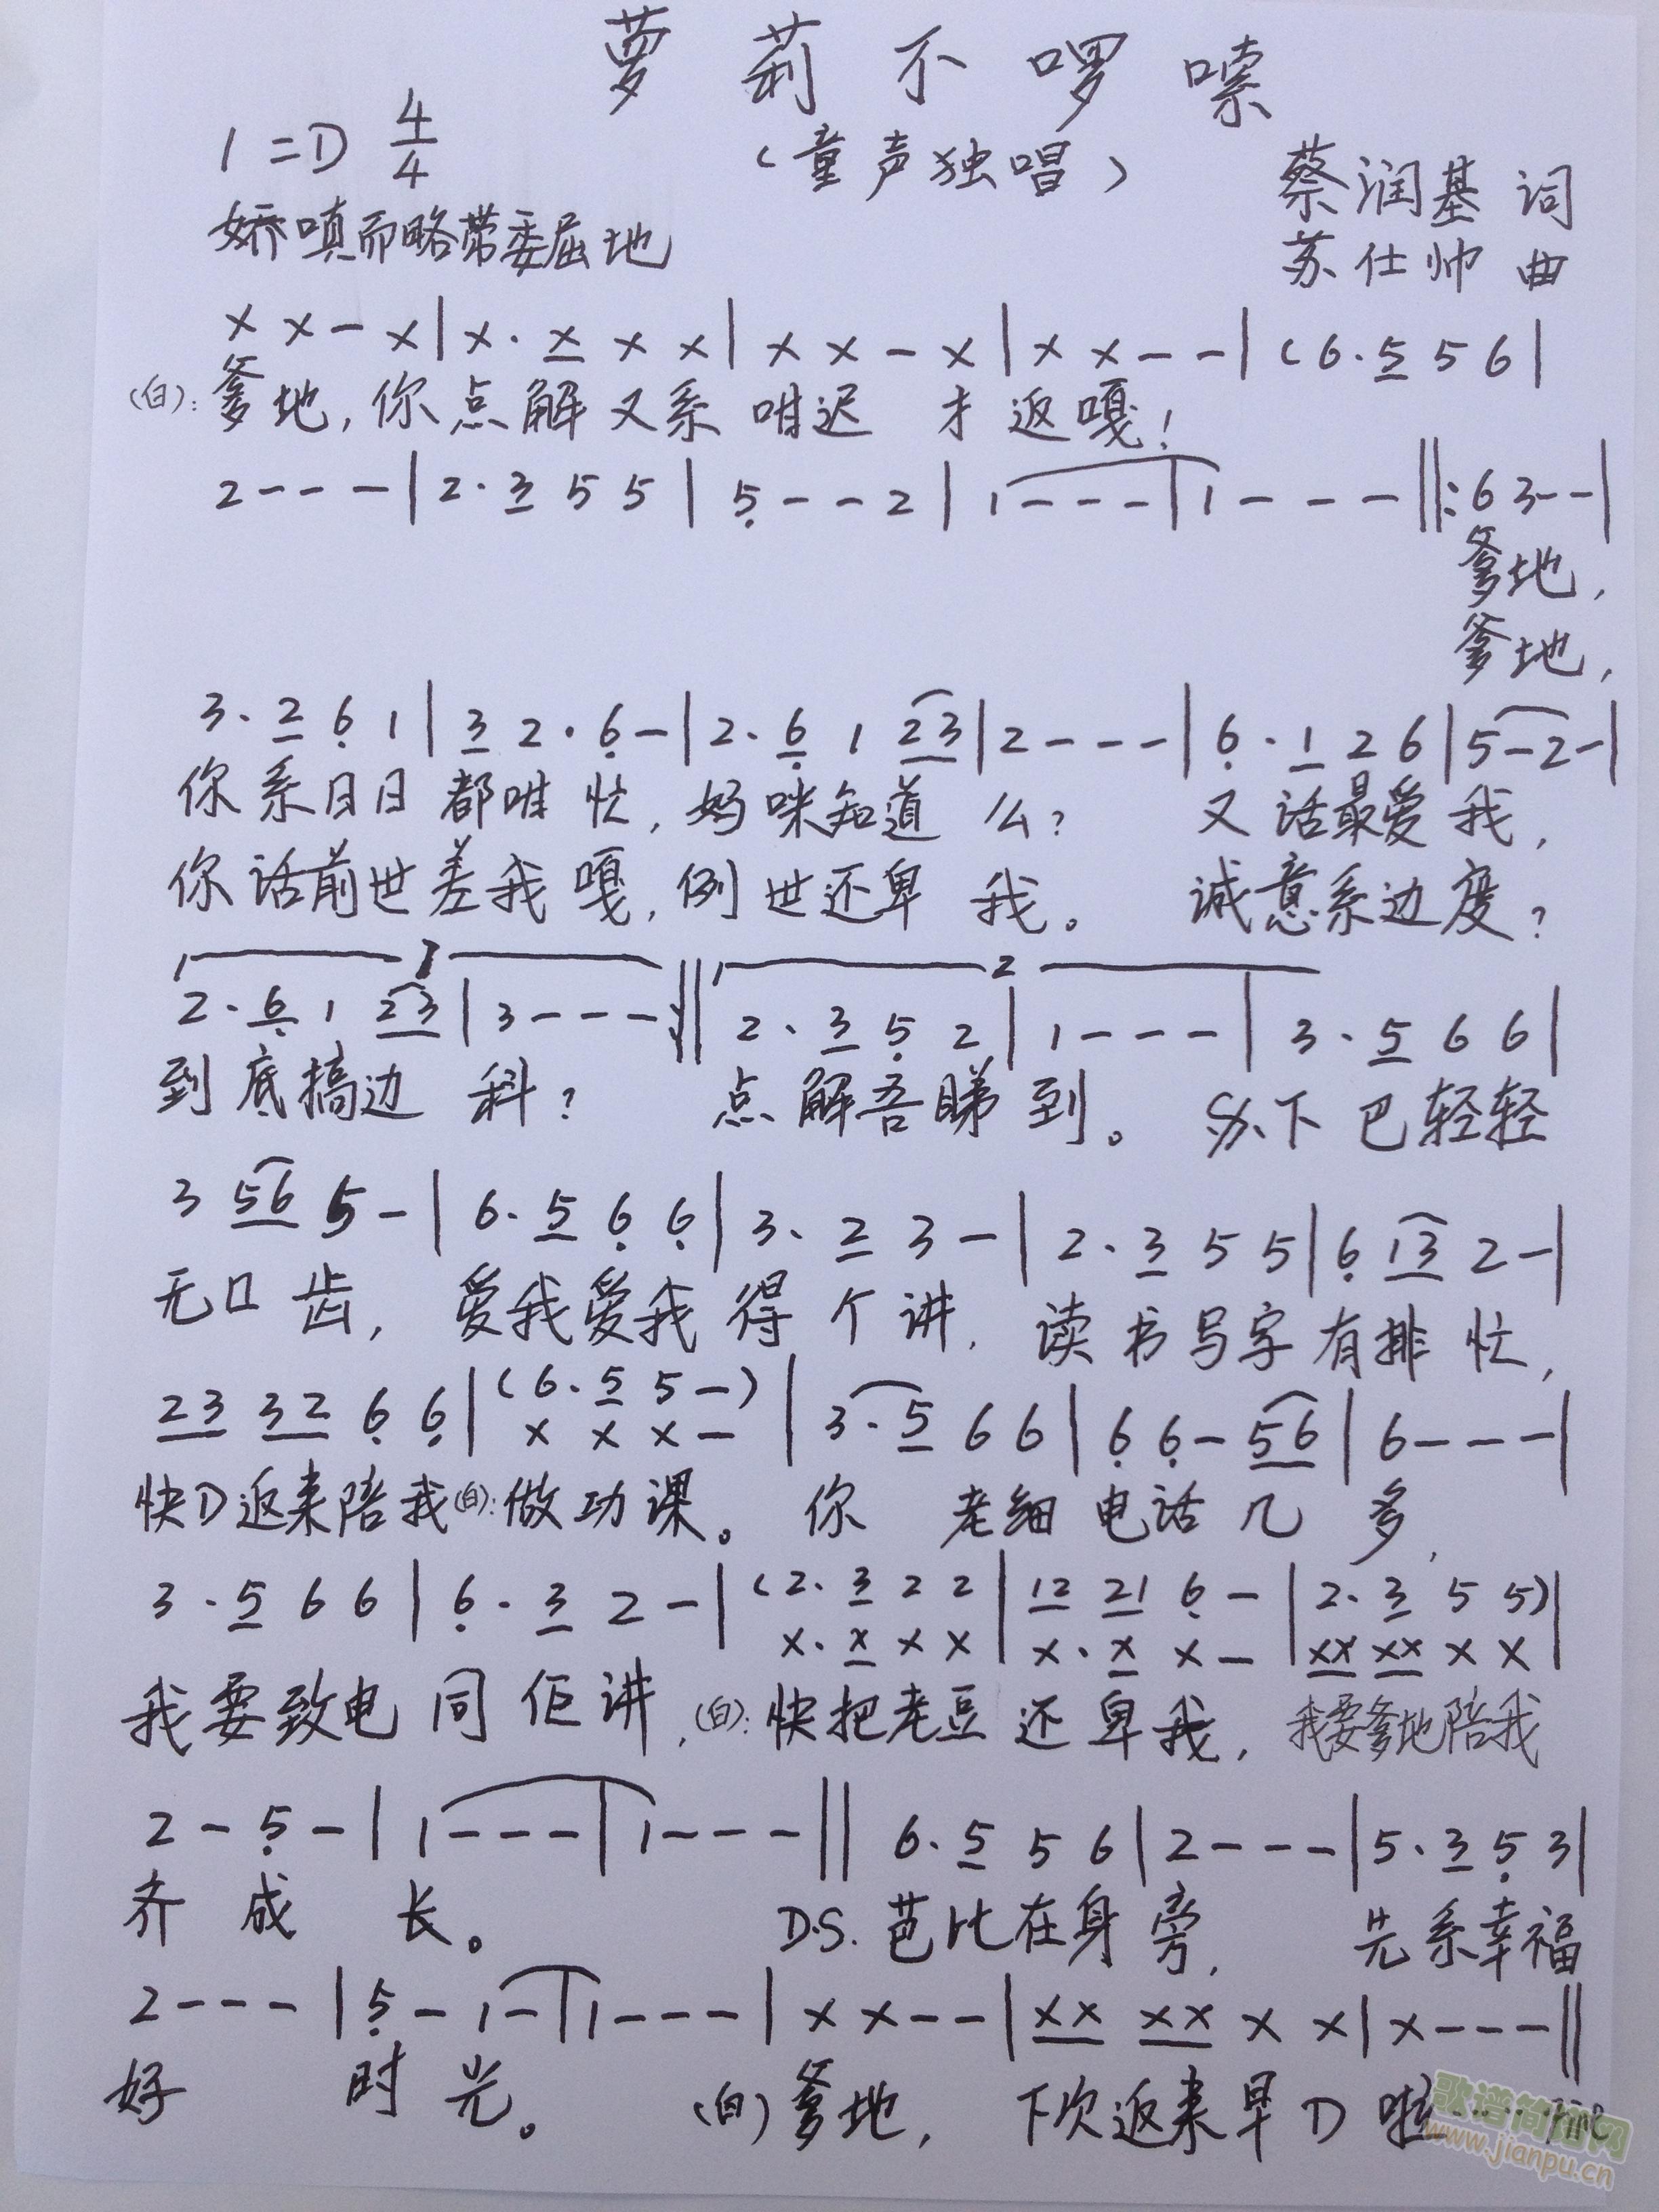 萝莉不啰嗦
1=D 4/4
（童声独唱）
蔡润基 词
娇嗔而略带委屈地
苏仕帅 曲
x x - x | x. x x x | x x - x | x x - - | (6. 5 5 6 |
(白): 爹地, 你点解又系咁迟 才返嘎!
2 - - - | 2. 3 5 5 | 5 - - 2 | 1 - - - | 1 - - - ||: 6 3 - - |
爹地,
爹地,
3. 2 6 1 | 3 2. 6 - | 2. 6 1 23 | 2 - - - | 6. 1 2 6 | 5 - 2 - |
你系日日都咁忙, 妈咪知道么? 又话最爱我,
你话前世差我嘎, 例世还卑我。 诚意系边度?
1 2
2. 6 1 23 | 3 - - - :|| 2. 3 5 2 | 1 - - - | 3. 5 6 6 |
到底搞边科? 点解吾睇到。 下巴轻轻
3 56 5 - | 6. 5 6 6 | 3. 2 3 - | 2. 3 5 5 | 6 13 2 - |
无口齿, 爱我爱我得个讲, 读书写字有排忙,
23 32 6 6 | (6. 5 5 -) | 3. 5 6 6 | 6 6 - 56 | 6 - - - |
x x x -
快D返来陪我(白): 做功课。 你老细电话几多,
3. 5 6 6 | 6. 3 2 - | (2. 3 2 2 | 12 21 6 - | 2. 3 5 5) |
x. x x x | x. x x - | xx xx x x |
我要致电同佢讲, (白): 快把老豆还卑我, 我要爹地陪我
2 - 5 - | 1 - - - | 1 - - - || 6. 5 5 6 | 2 - - - | 5. 3 5 3 |
齐成长。 D.S. 芭比在身旁, 先系幸福
2 - - - | 5 - 1 - | 1 - - - | x x - - | xx xx x x | x - - - ||
好时光。 (白) 爹地, 下次返来早D啦…… Fine
歌谱简谱网
www.jianpu.cn